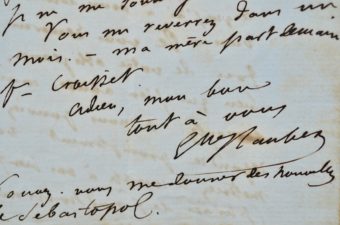 Vous me reverrez dans un
mois. – ma mère part demain
pr Croisset
adieu, mon bon
tout à vous
Gve Flaubert
vous me donner des nouvelles
de Sébastopol.